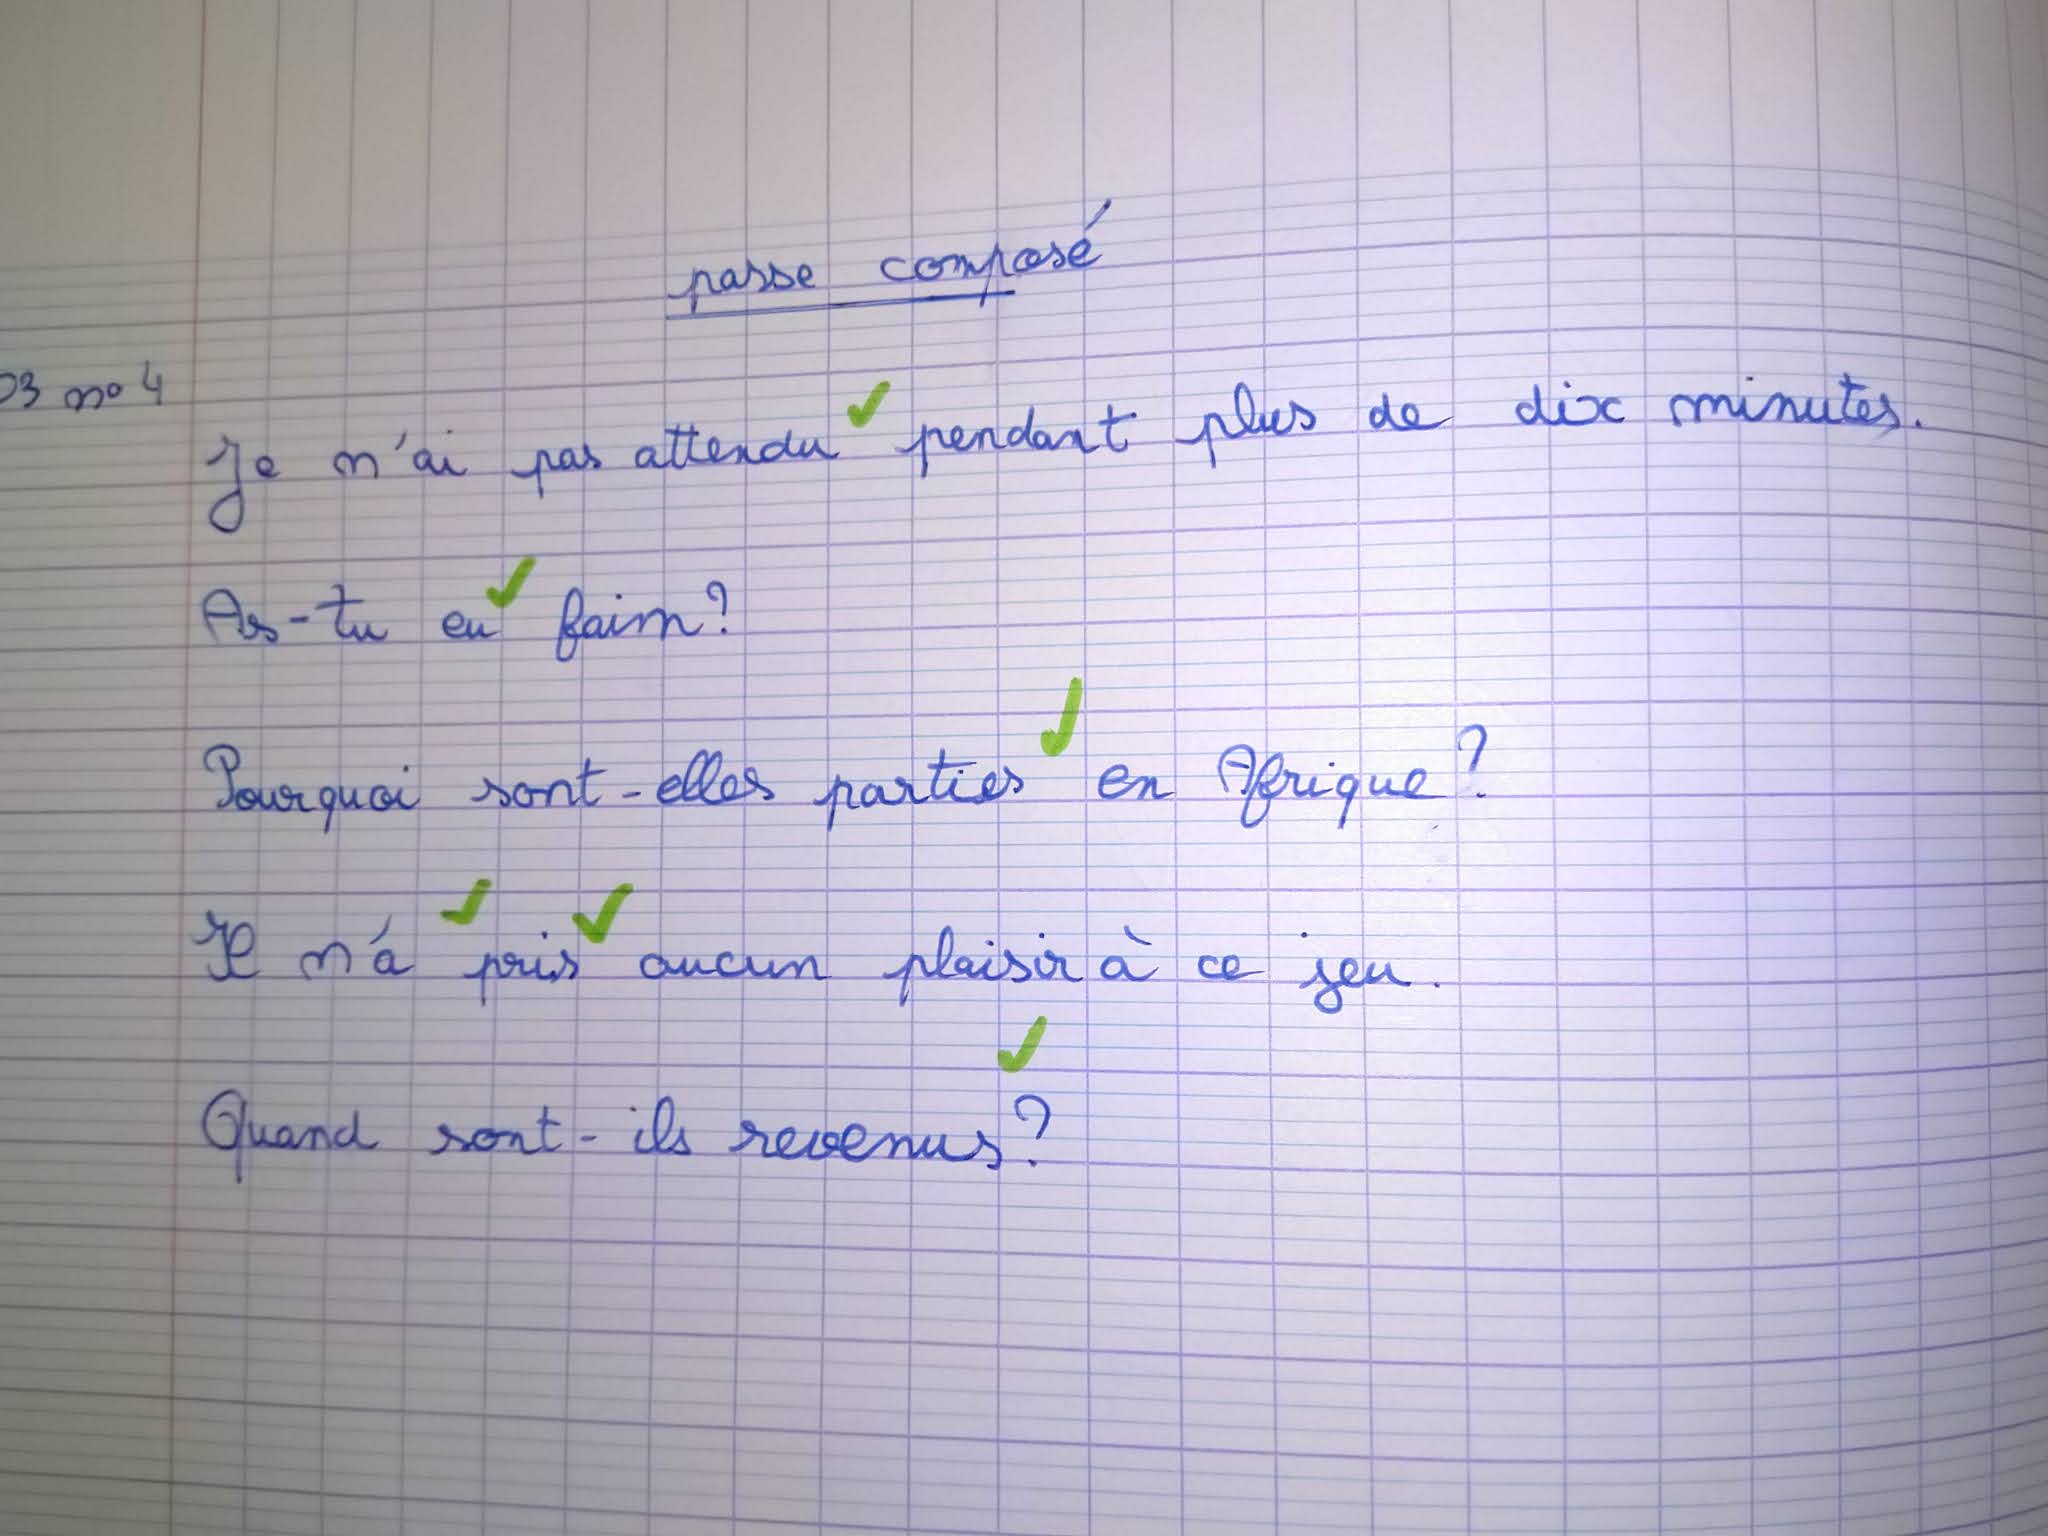 passe composé
03 no 4
Je n'ai pas attendu pendant plus de dix minutes.
As-tu eu faim?
Pourquoi sont-elles parties en Afrique?
Il n'á pris aucun plaisir à ce jeu.
Quand sont-ils revenus?